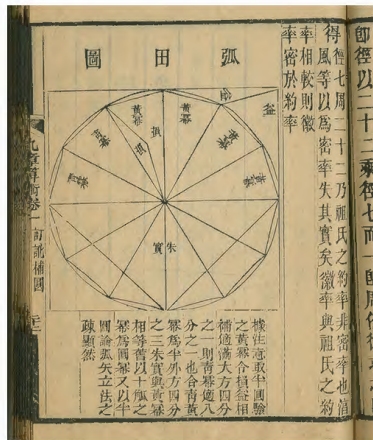 卽徑以二十二乘徑七而一卽周
得徑七周二十二乃祖氏之約率非密率也淳
風等以為密率失其實矣徽率與祖氏之約
率相較則徽
率密於約率
弧田圖
益
益
黃冪
黃冪
損
損
青冪
青冪
黃冪
青冪
朱實
據注意取半圓驗
之黃冪合損益相
補適滿大方四分
之一則青冪適八
分之一也合青黃
冪為半外方四分
之三朱實與黃冪
相等舊以十觚之
冪為圓冪又以半
圓論弧矢立法之
疎顯然
九章算術卷一 訂訛補圖